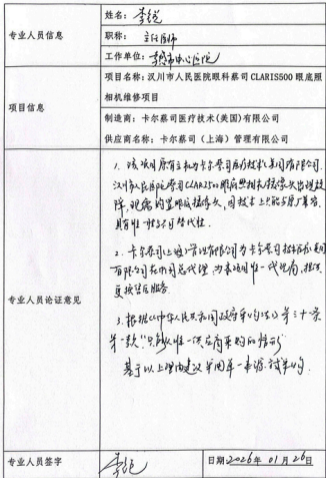 专业人员信息
姓名：李锐
职称：主任医师
工作单位：孝感市中心医院
项目信息
项目名称：汉川市人民医院眼科蔡司CLARIS500 眼底照
相机维修项目
制造商：卡尔蔡司医疗技术(美国)有限公司
供应商名称：卡尔蔡司（上海）管理有限公司
专业人员论证意见
1. 该项目原有主机为卡尔蔡司医疗技术(美国)有限公司,
汉川市人民医院蔡司CLARIS500眼底照相机摄像头出现故
障, 现需购置眼底摄像头, 因技术上只能与原厂兼容,
具有唯一性和不可替代性.
2. 卡尔蔡司(上海)管理有限公司为卡尔蔡司医疗技术(美国)
有限公司在中国总代理, 为本项目唯一代理商, 提供
更换售后服务.
3. 根据《中华人民共和国政府采购法》第三十一条
第一款"只能从唯一供应商采购的"情形
基于以上理由建议采用单一来源方式采购.
专业人员签字
李锐
日期2026年 01 月 26日